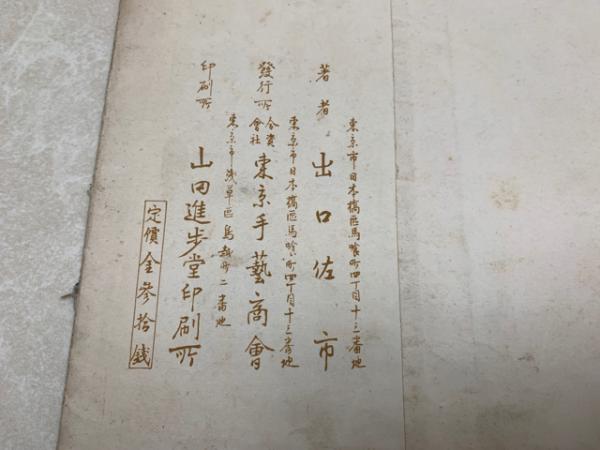 東京市日本橋區馬喰町四丁目十三番地
著者 出口佐市
東京市日本橋區馬喰町四丁目十三番地
發行所 合資會社 東京手藝商會
東京市浅草區鳥越町二番地
印刷所 山田進歩堂印刷所
定價金參拾錢